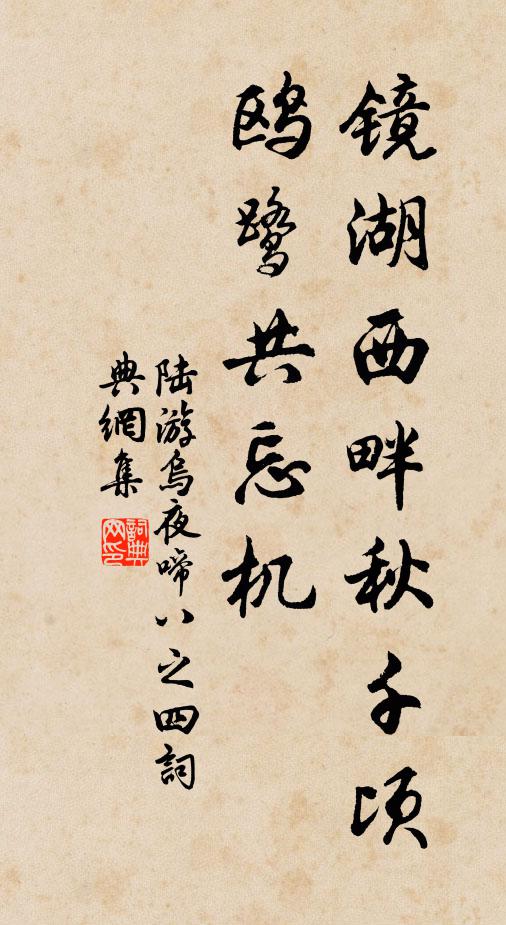 镜湖西畔秋千顷
鸥鹭共忘机
陆游乌夜啼八之四詞
典網集
詞典
网印